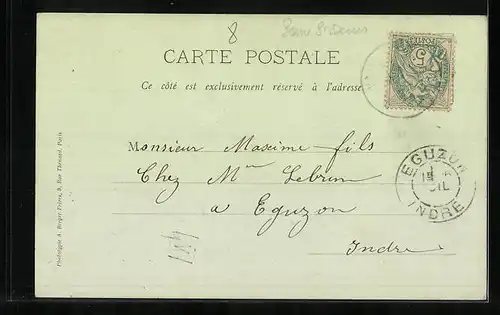 8
CARTE POSTALE
Ce côté est exclusivement réservé à l'adresse
Monsieur Maxime fils
Chez Mme Lebrun
a Eguzon
Indre
EGUZON
INDRE
5
Phototypie A. Berger Frères, 9, Rue Thénard, Paris